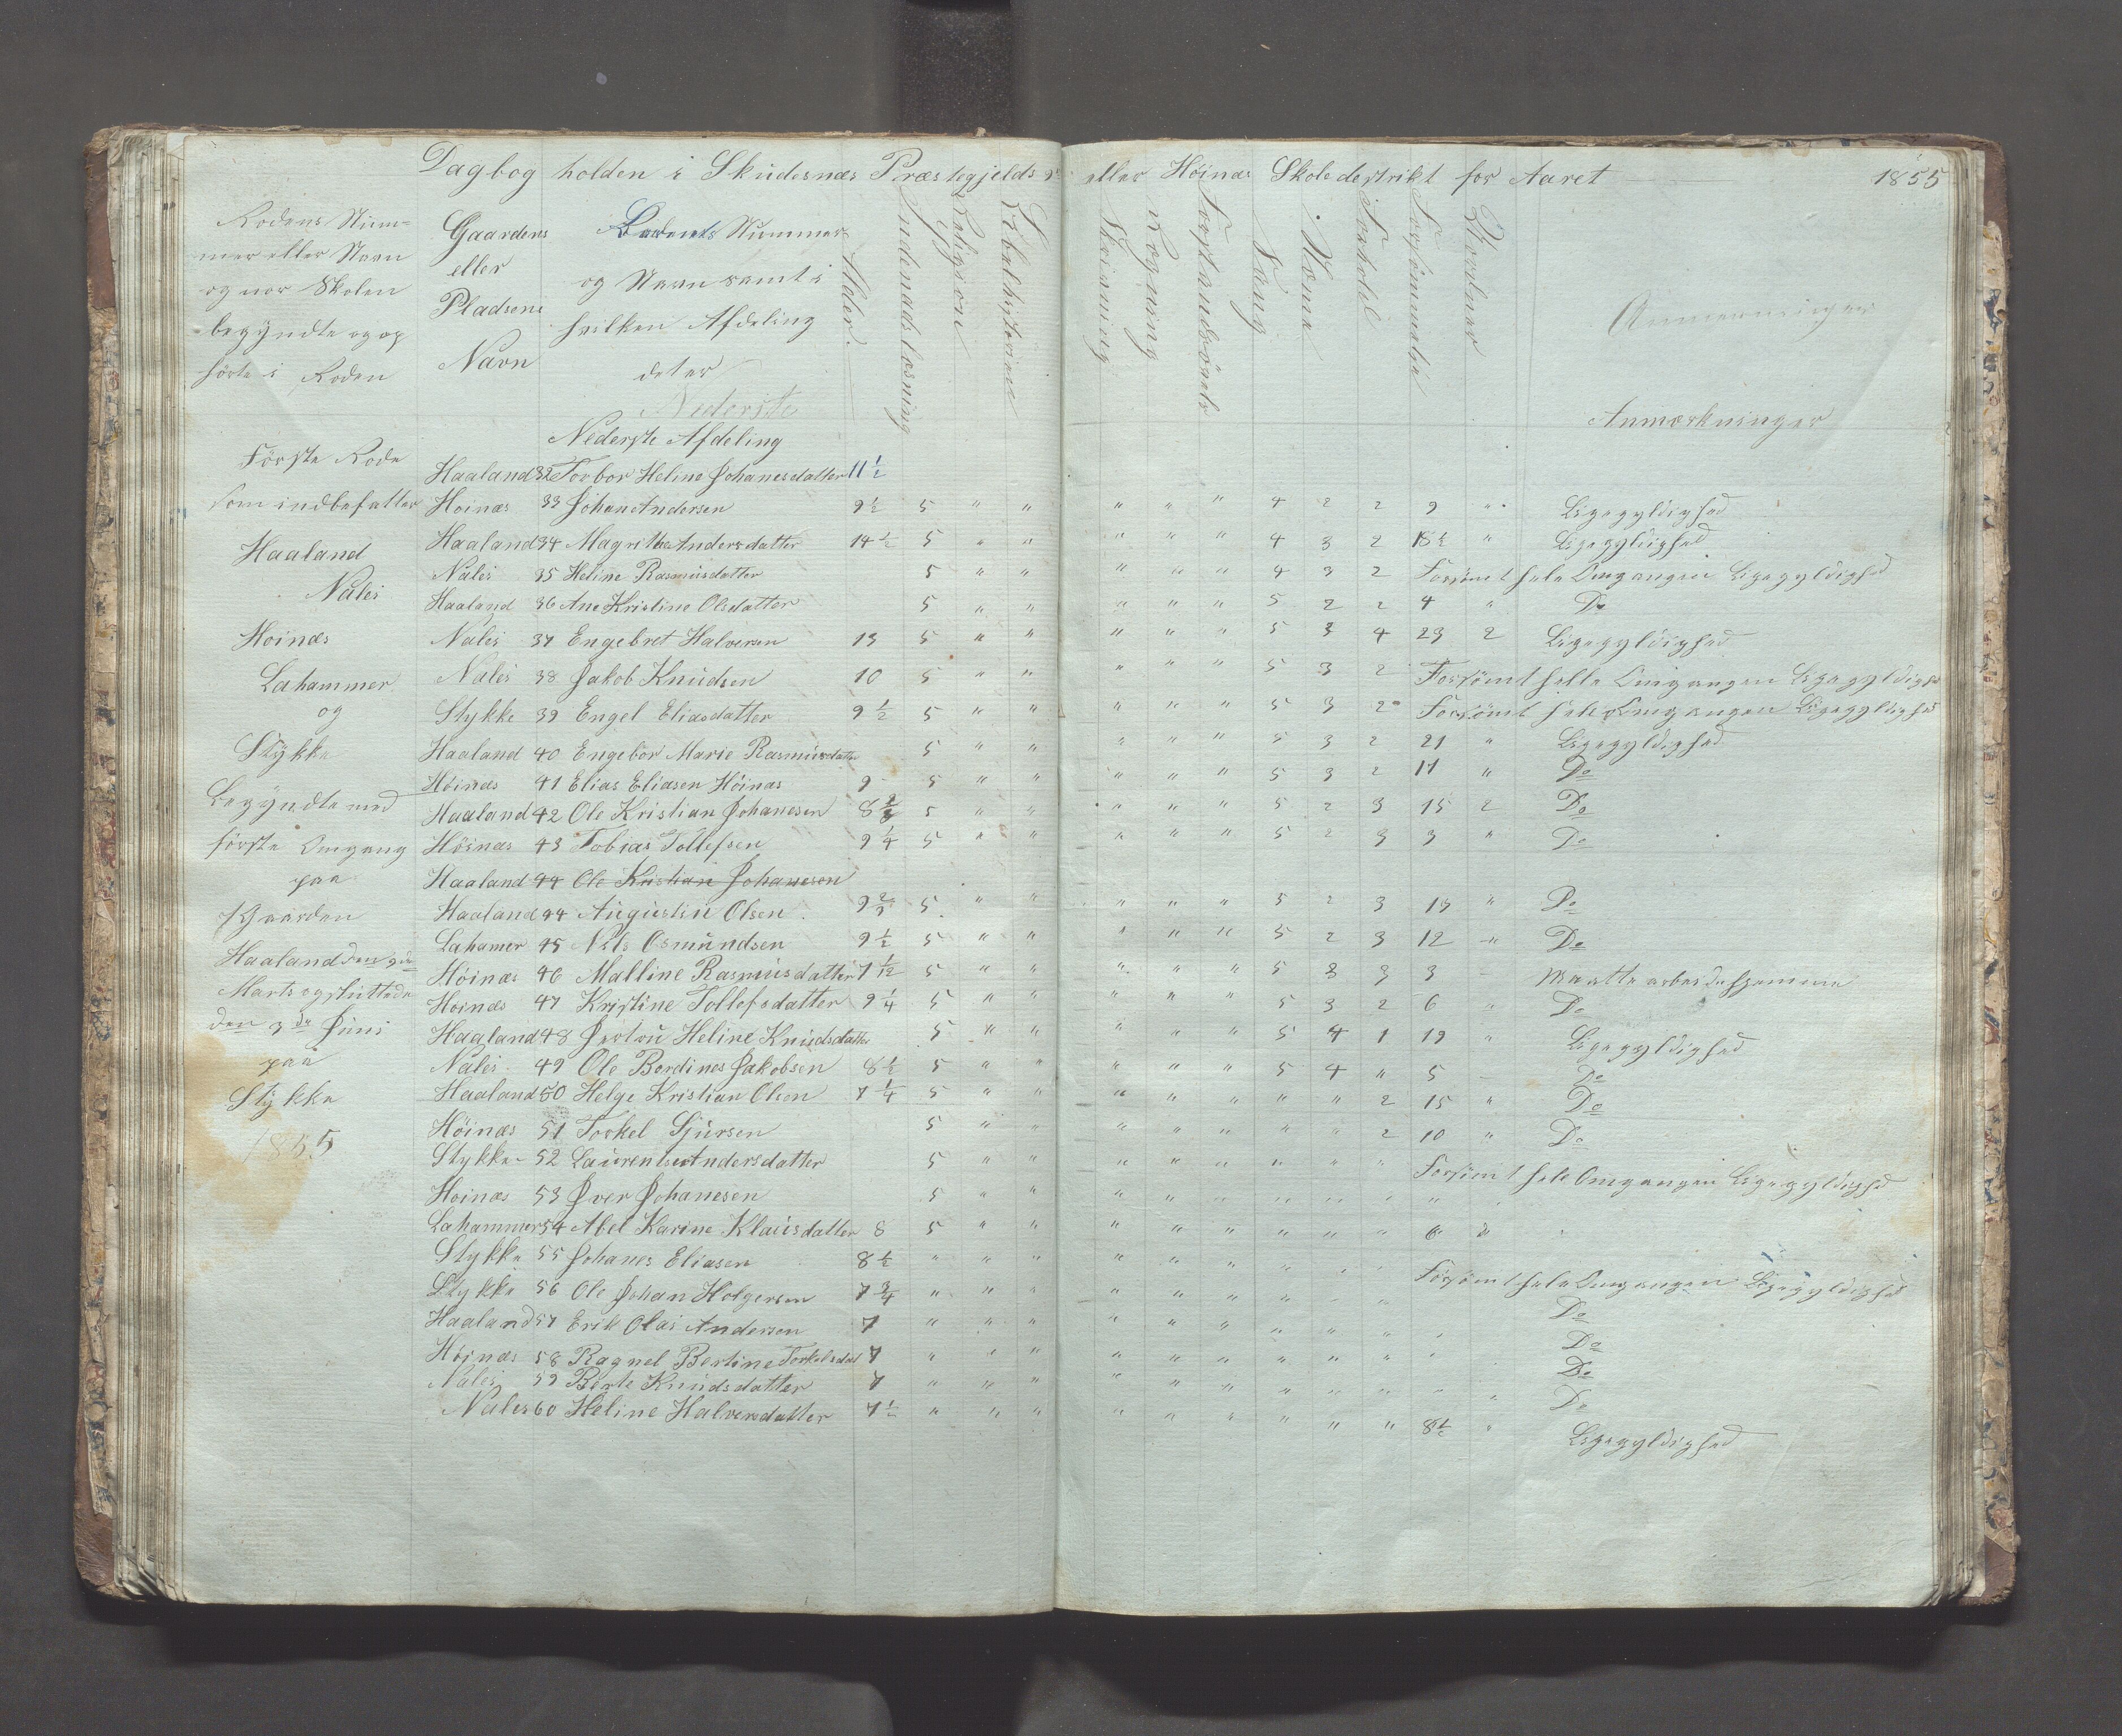 Dagbog holden i Skudesnæs Præstegjelds eller Höinæs Skoledestrikt for Aaret 1855
Rodens Num-
mer eller Navn
og nor Skolen
begyndte og op
hörte i Roden
Gaardens
eller
Pladsens
Navn
Barnets Nummer
og Navn samt i
hvilken Afdeling
det er
Alder.
Indenadslæsning
Religion
Bibelhistorien
Skrivning
Regning
Forstandsövels
Sang
Næme
Forhold
Forsömmelse
Anmærkninger
Nederste
Nederste Afdeling
Förste Rode
som indbefatter
Haaland
Nales
Hoinæs
Lahammer
og
Stykke
Begyndte med
förste Omgang
paa
Gaarden
Haaland den
Marts og sluttede
den 3de Juni
paa
Stykke
1855
Haaland 32 Torbor Heline Johanesdatter 11½
Hoinæs 33 Johan Andersen 9½ 5 " " " " " 4 2 2 9 " Ligegyldighed
Haaland 34 Magritha Andersdatter 14½ 5 " " " " " 4 3 2 15½ " Ligegyldighed
Nales 35 Heline Rasmusdatter 5 " " " " " 4 3 2 Forsömt hele Omgangen Ligegyldighed
Haaland 36 Ane Kristine Olsdatter 5 " " " " " 5 2 2 4 " Do
Nales 37 Engebret Halversen 13 5 " " " " " 5 3 4 23 2 Ligegyldighed
Nales 38 Jakob Knudsen 10 5 " " " " " 5 3 2 Forsömt helle Omgangen Ligegyldighed
Stykke 39 Engel Eliasdatter 9½ 5 " " " " " 5 3 2 Forsömt hele Omgangen Ligegyldighed
Haaland 40 Engebor Marie Rasmusdatter 5 " " " " " 5 3 2 21 " Ligegyldighed
Höinæs 41 Elias Eliasen Höinæs 9 5 " " " " " 5 3 2 17 " Do
Haaland 42 Ole Kristian Johanesen 8⅔ 5 " " " " " 5 2 3 15 2 Do
Höinæs 43 Tobias Tollefsen 9¼ 5 " " " " " 5 2 3 3 " Do
Haaland 44 Ole Kristian Johanesen
Haaland 44 Augustin Olsen 9⅔ 5 " " " " " 5 2 3 15 " Do
Lahamer 45 Nils Osmundsen 9½ 5 " " " " " 5 2 3 12 " Do
Höinæs 46 Malline Rasmusdatter 7 1/12 5 " " " " " 5 3 3 3 Maatte arbeide hjemme
Hoinæs 47 Kristine Tollefsdatter 9¼ 5 " " " " " 5 3 2 6 " Do
Haaland 48 Jertru Heline Knudsdatter 5 " " " " " 5 4 1 19 " Ligegyldighed
Nales 49 Ole Berdines Jakobsen 8½ 5 " " " " " 5 4 " 5 Do
Haaland 50 Helge Kristian Olsen 7¼ 5 " " " " " " " 2 15 " Do
Höinæs 51 Torkel Sjursen 5 " " " " " " " 2 10 " Do
Stykke 52 Laurense Andersdatter 5 " " " " " " " " Forsömt hele Omgangen Ligegyldighed
Hoinæs 53 Iver Johanesen 5 " " " " " " " " "
Lahammer 54 Abel Karine Klausdatter 8 5 " " " " " " " " 6 "
Stykke 55 Johanes Eliasen 8½ " " " " " " " " "
Stykke 56 Ole Johan Holgersen 7¾ " " " " " " " " " Forsömt hele Omgangen Ligegyldighed
Haaland 57 Erik Olai Andersen 7 " " " " " " " " " Do
Höinæs 58 Ragnel Bertine Torkelsdat 7 " " " " " " " " " Do
Nales 59 Berte Knudsdatter 7 " " " " " " " " " Do
Nales 60 Heline Halversdatter 7½ " " " " " " " " " 8½ " Do
Ligegyldighed